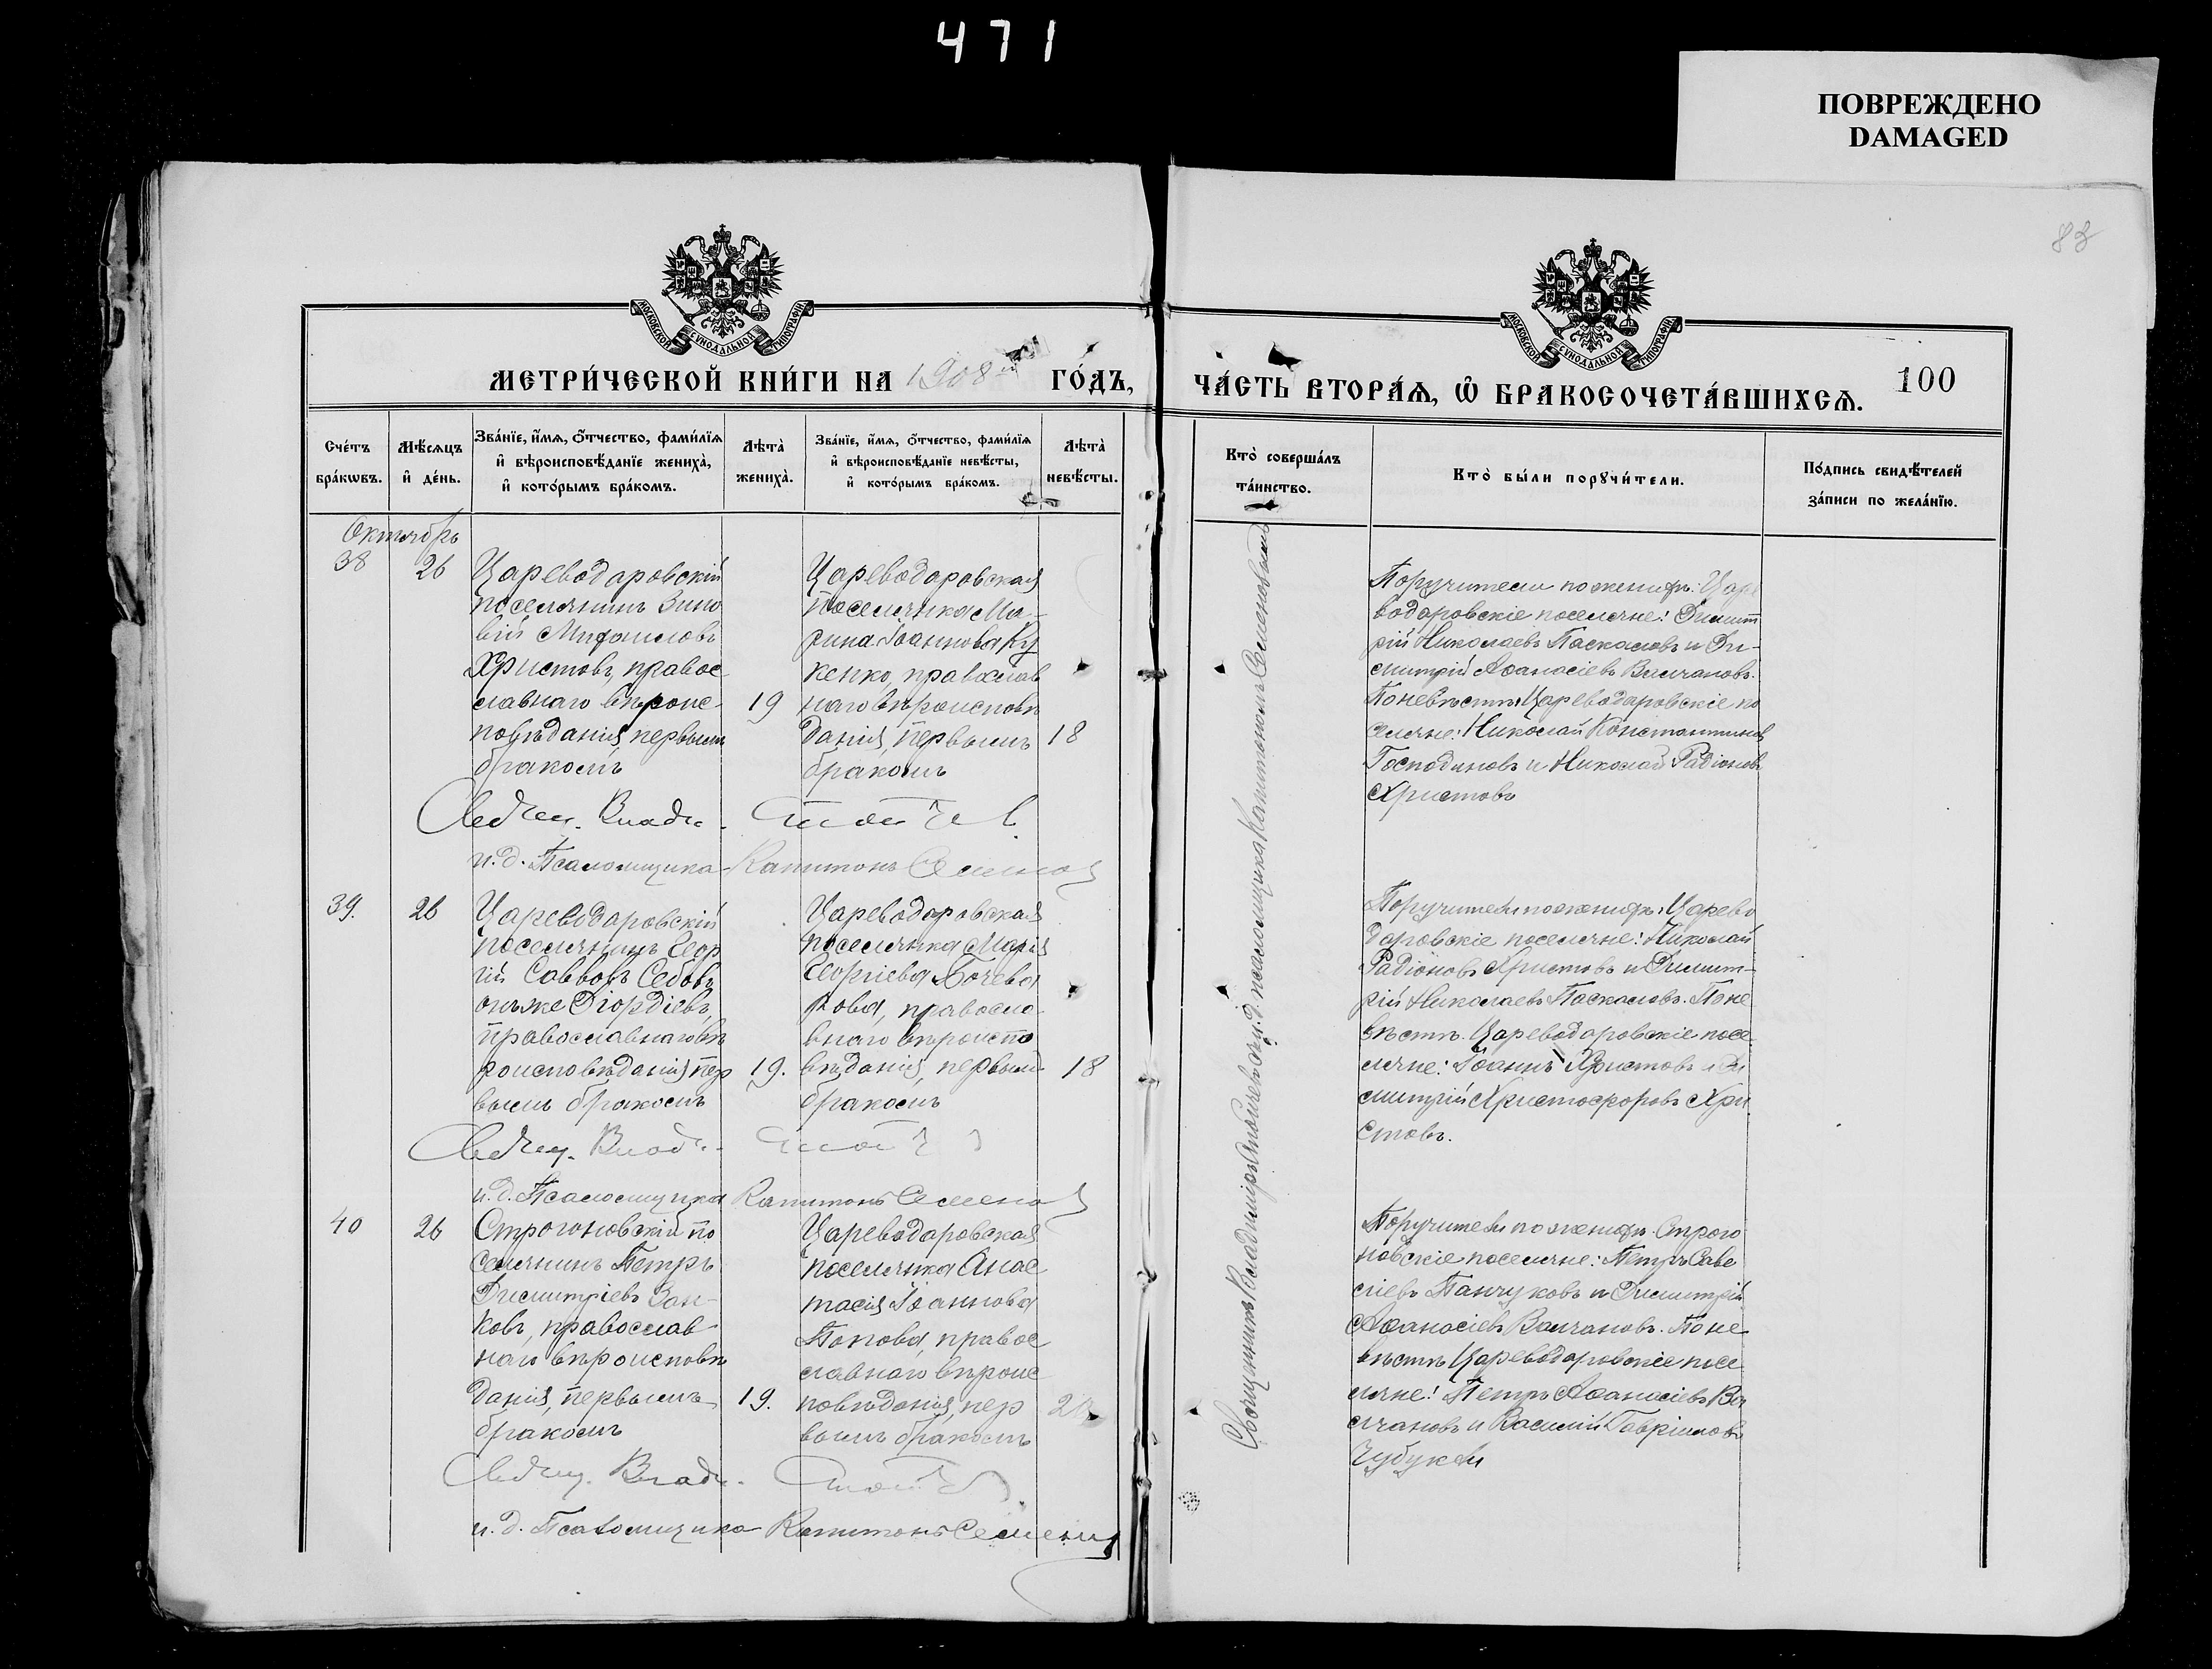 471
ПОВРЕЖДЕНО
DAMAGED
83
МОСКОВСКОЙ СѴНОДАЛЬНОЙ ТИПОГРАФІИ
МОСКОВСКОЙ СѴНОДАЛЬНОЙ ТИПОГРАФІИ
МЕТРИ́ЧЕСКОЙ КНИ́ГИ НА 1908 ГО́ДЪ,
ЧА́СТЬ ВТОРА́Ѧ, Ѽ БРАКОСОЧЕТА́ВШИХСѦ.
100
Сче́тъ
бра́кωвъ.
Мѣ́сѧцъ
и҆ де́нь.
Зва́нїе, и҆́мѧ, ѻ҆́тчество, фами́лїѧ
и҆ вѣроисповѣ́данїе жениха̀,
и҆ кото́рымъ бра́комъ.
Лѣта̀
жениха̀.
Зва́нїе, и҆́мѧ, ѻ҆́тчество, фами́лїѧ
и҆ вѣроисповѣ́данїе невѣ́сты,
и҆ кото́рымъ бра́комъ.
Лѣта̀
невѣ́сты.
Кто̀ соверша́лъ
та́инство.
Кто̀ бы́ли порꙋчи́тели.
По́дпись свидѣ́телей
за́писи по жела́нїю.
Октябрь
38
26
Цареводаровскій
поселянинъ Зино
вій Михаиловъ
Христовъ, правос
лавнаго вѣроис
повѣданія, первымъ
бракомъ
19
Цареводаровская
поселянка Ма-
рина Іоаннова Ку
женко, православ
наго вѣроисповѣ
данія, первымъ
бракомъ
18
и. д. Псаломщика Капитонъ Семенов
Поручители по женихѣ: Царе
водаровскіе поселяне: Димит
рій Николаевъ Паскаловъ и Ди-
митрій Аѳанасіевъ Валчановъ.
По невѣстѣ: Цареводаровскіе по
селяне: Николай Константиновъ
Господиновъ и Николай Радіоновъ
Христовъ
39.
26
Цареводаровскій
поселянинъ Геор
гій Саввовъ Себовъ
онъ же Діордіевъ,
православнаго вѣ
роисповѣданія, пер
вымъ бракомъ
19.
Цареводаровская
поселянка Марія
Георгіева Бочева
рова, правосла
внаго вѣроиспо
вѣданія, первым
бракомъ
18
и. д. Псаломщика Капитонъ Семенов
Поручители по женихѣ: Царево
даровскіе поселяне: Николай
Радіоновъ Христовъ и Димит-
рій Николаевъ Паскаловъ. По не
вѣстѣ: Цареводаровскіе посе
ляне: Іоаннъ Христовъ и Ди
митрій Христофоровъ Хри
стовъ.
40
26
Строгоновскій по
селянинъ Петръ
Димитріевъ Зан-
ковъ, православ
наго вѣроисповѣ
данія, первымъ
бракомъ
19.
Цареводаровская
поселянка Анас
тасія Іоаннова
Попова, правос
лавнаго вѣроис
повѣданія, пер
вымъ бракомъ
и. д. Псаломщика Капитонъ Семенов
Поручители по женихѣ: Строго
новскіе поселяне: Петръ Саве
ліевъ Панчуковъ и Димитрій
Аѳанасіевъ Валчановъ. По не
вѣстѣ: Цареводаровскіе посе
ляне: Петръ Аѳанасіевъ Ва
лчановъ и Василій Гавріиловъ
Чубукли